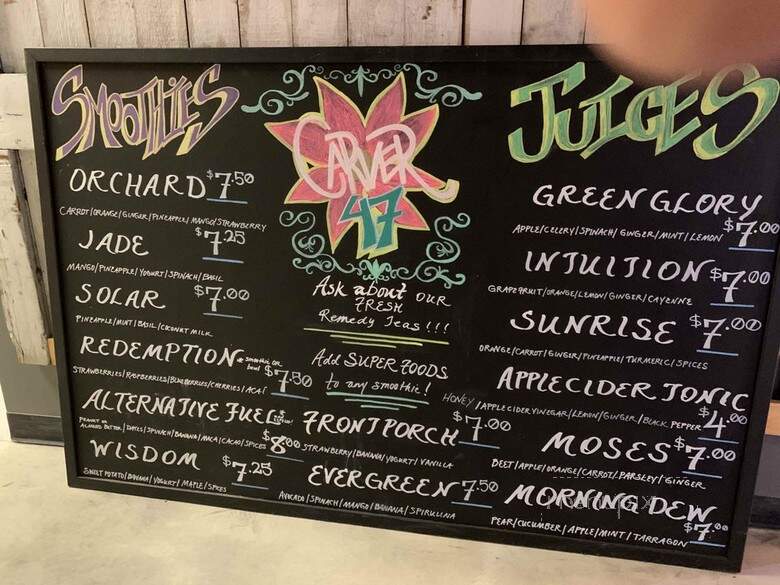 SMOOTHIES
ORCHARD $7.50
CARROT/ORANGE/GINGER/PINEAPPLE/MANGO/STRAWBERRY
JADE $7.25
MANGO/PINEAPPLE/YOGURT/SPINACH/BASIL
SOLAR $7.00
PINEAPPLE/MINT/BASIL/COCONUT MILK
REDEMPTION smoothie or bowl $7.50
STRAWBERRIES/RASPBERRIES/BLUEBERRIES/CHERRIES/ACAI
ALTERNATIVE FUEL
PEANUT OR ALMOND BUTTER/DATES/SPINACH/BANANA/MACA/CACAO/SPICES $8.00
WISDOM $7.25
SWEET POTATO/BANANA/YOGURT/MAPLE/SPICES
CARVER
47
Ask about OUR
FRESH
Remedy Teas!!!
Add SUPER FOODS
to any smoothie!
FRONT PORCH $7.00
STRAWBERRY/BANANA/YOGURT/VANILLA
EVERGREEN $7.50
AVOCADO/SPINACH/MANGO/BANANA/SPIRULINA
JUICES
GREEN GLORY
APPLE/CELERY/SPINACH/GINGER/MINT/LEMON $7.00
INTUITION $7.00
GRAPEFRUIT/ORANGE/LEMON/GINGER/CAYENNE
SUNRISE $7.00
ORANGE/CARROT/GINGER/PINEAPPLE/TURMERIC/SPICES
APPLE CIDER TONIC
HONEY/APPLE CIDER VINEGAR/LEMON/GINGER/BLACK PEPPER $4.00
MOSES $7.00
BEET/APPLE/ORANGE/CARROT/PARSLEY/GINGER
MORNING DEW
PEAR/CUCUMBER/APPLE/MINT/TARRAGON $7.00